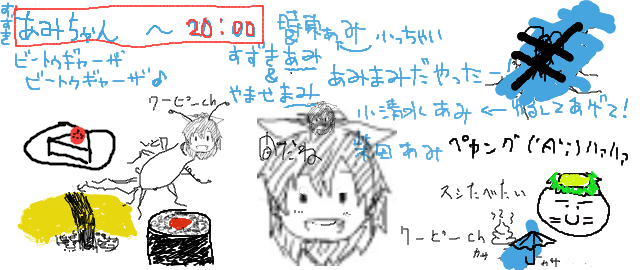 すずき
あみちゃん 〜 20:00
ビートゥギャーザ
ビートゥギャーザ♪
あみ 小っちゃい
すずきあみ
&
やませまみ
あみまみだやったー
小清水あみ ← 消してあげて!
柴田あみ
ペカング('A`;)ハァハァ
クーピーch
だね
スシたべたい
クーピーch
カサ
カサ